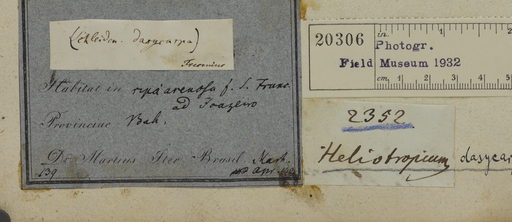 (Schleiden. dasycarpa)
Fresenius
Habitat in ripa arenosa f. S. Franc.
ad Joazeiro
Provinciae Bah.
Dr. Martius Iter Brasil.
139
Apr.
20306
in.
1
2
Photogr.
Field Museum 1932
cm.
1
2
3
4
5
2352
Heliotropium dasycar